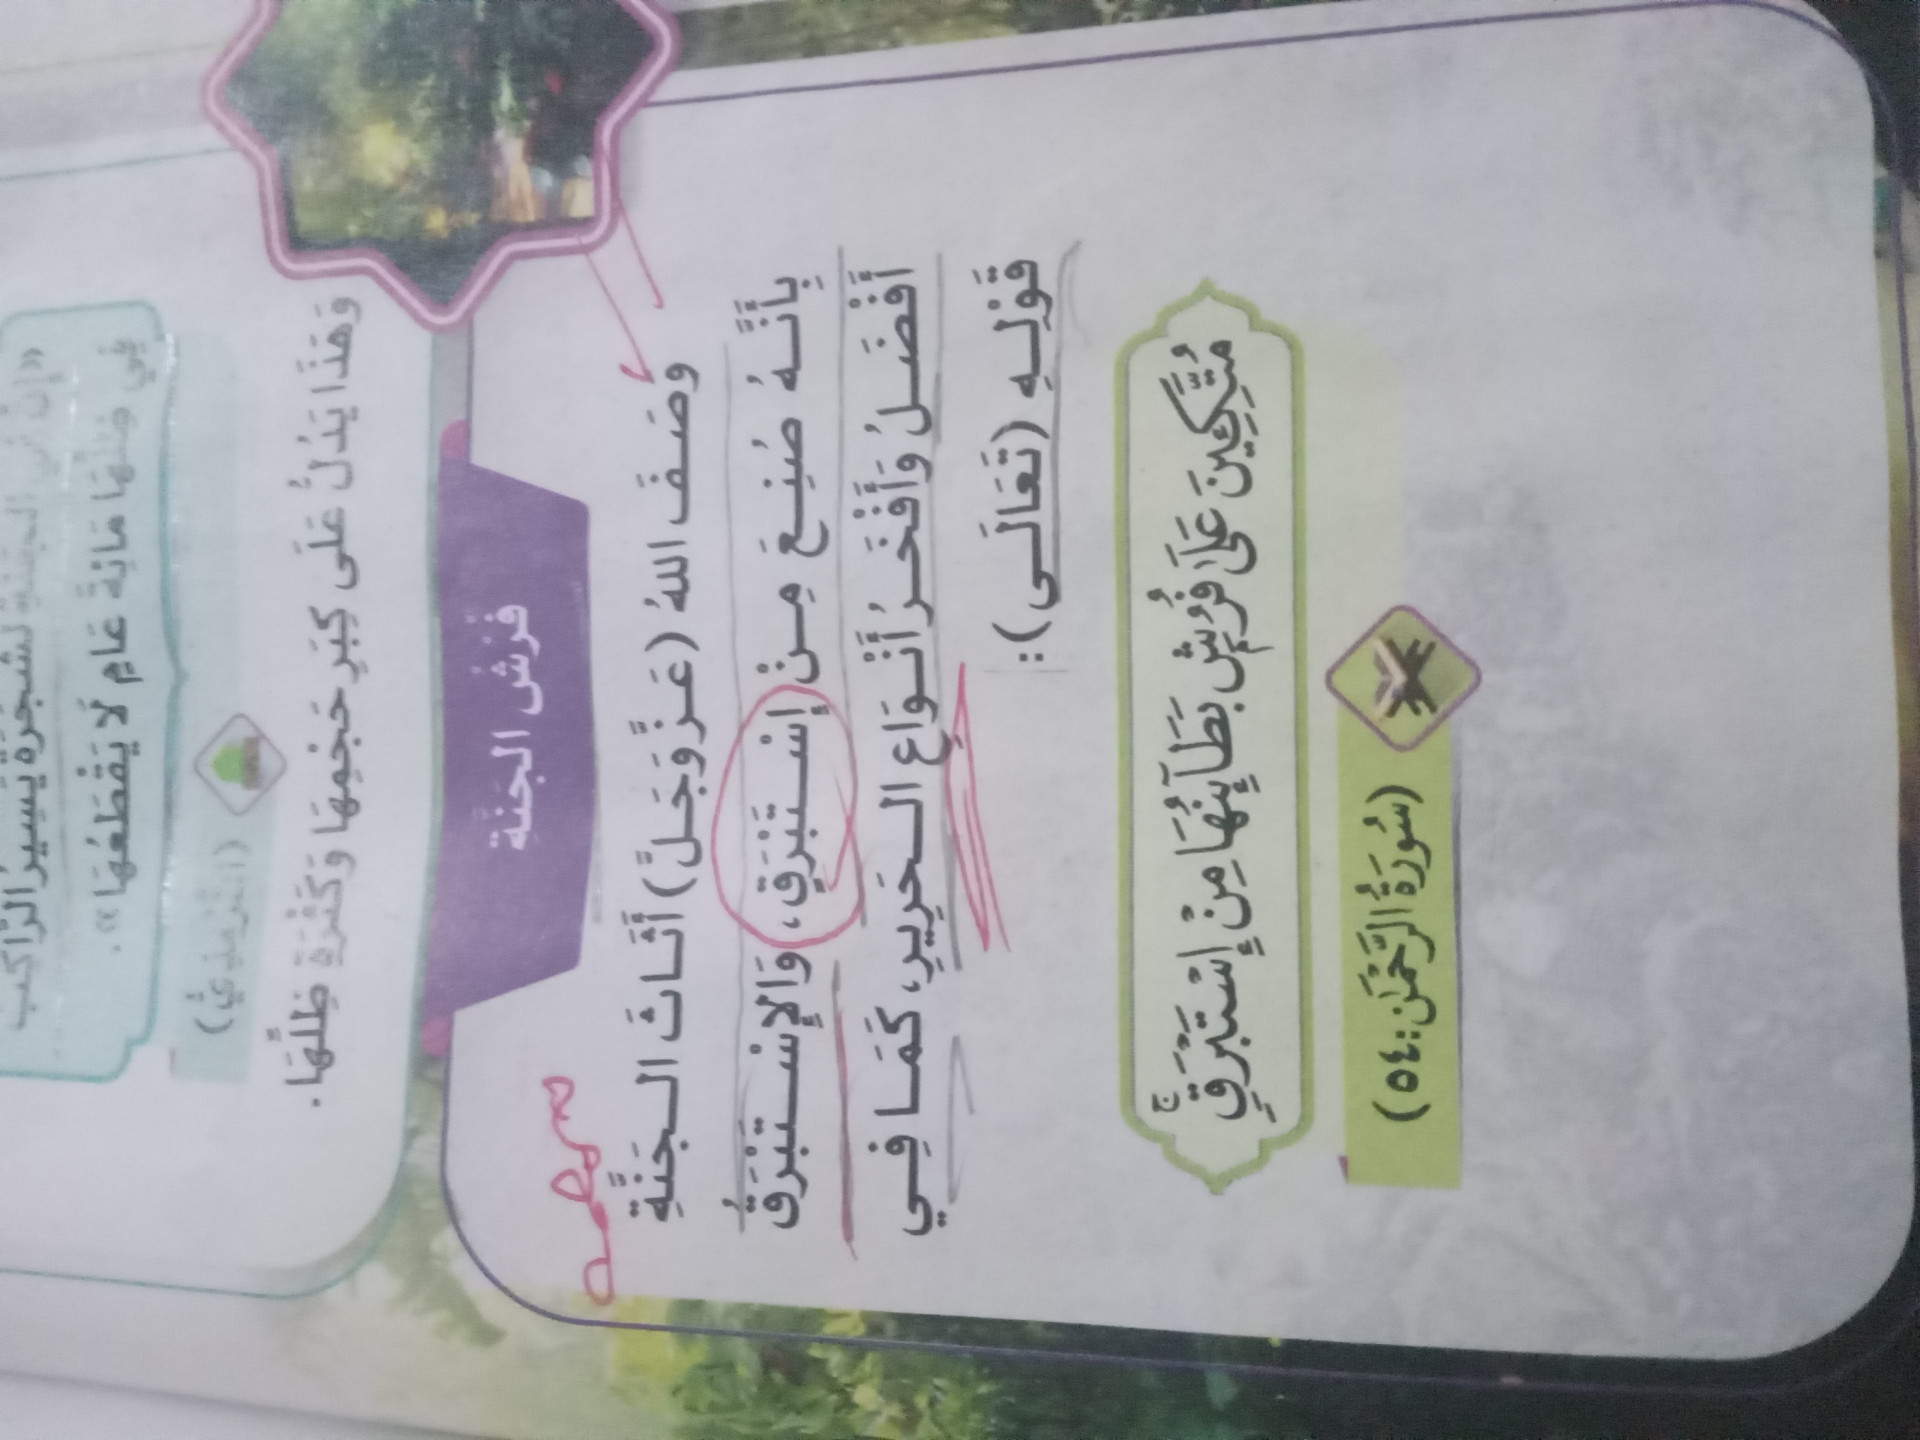 «إِنَّ فِي الجَنَّةِ لَشَجَرَةً يَسِيرُ الرَّاكِبُ
فِي ظِلِّهَا مِائَةَ عَامٍ لَا يَقْطَعُهَا».
(التِّرْمِذِيُّ)
وَهَذَا يَدُلُّ عَلَى كِبَرِ حَجْمِهَا وَكَثْرَةِ ظِلِّهَا.
فُرُشُ الجَنَّةِ
وَصَفَ اللهُ (عَزَّ وَجَلَّ) أَثَاثَ الجَنَّةِ
بِأَنَّهُ صُنِعَ مِنْ إِسْتَبْرَقٍ، وَالإِسْتَبْرَقُ
أَفْضَلُ وَأَفْخَرُ أَنْوَاعِ الحَرِيرِ، كَمَا فِي
قَوْلِهِ (تَعَالَى):
مُتَّكِئِينَ عَلَىٰ فُرُشٍۭ بَطَآئِنُهَا مِنْ إِسْتَبْرَقٍۚ
(سُورَةُ الرَّحْمَٰن: ٥٤)